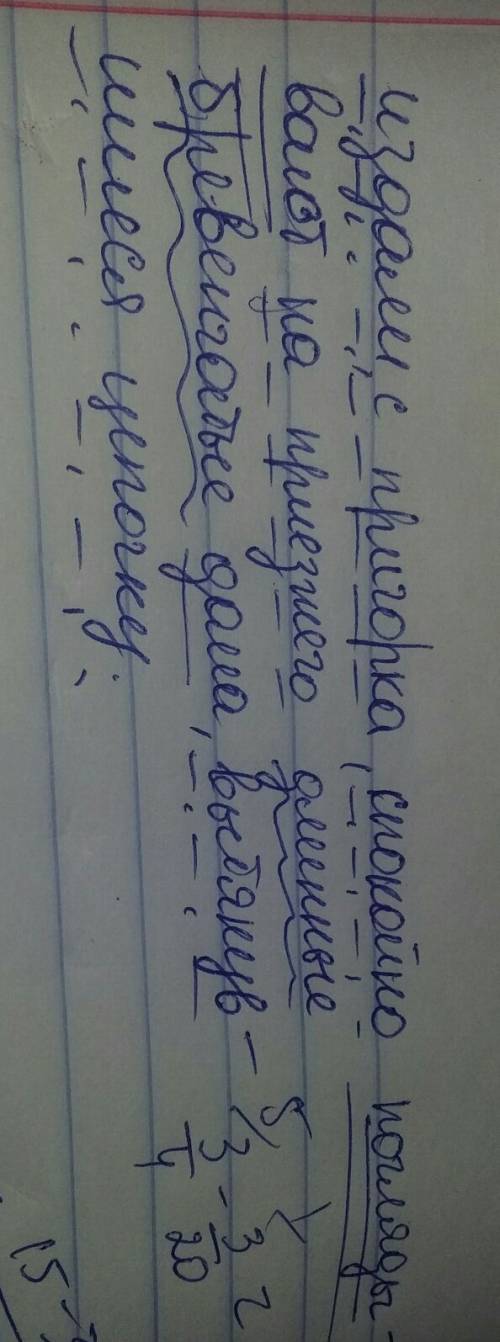 издали с пригорка, спокойно погляды-
вают на приезжего длинные
бревенчатые дома, вытянув-
шиеся цепочку.
5) 3/4 - 3/20
15 -